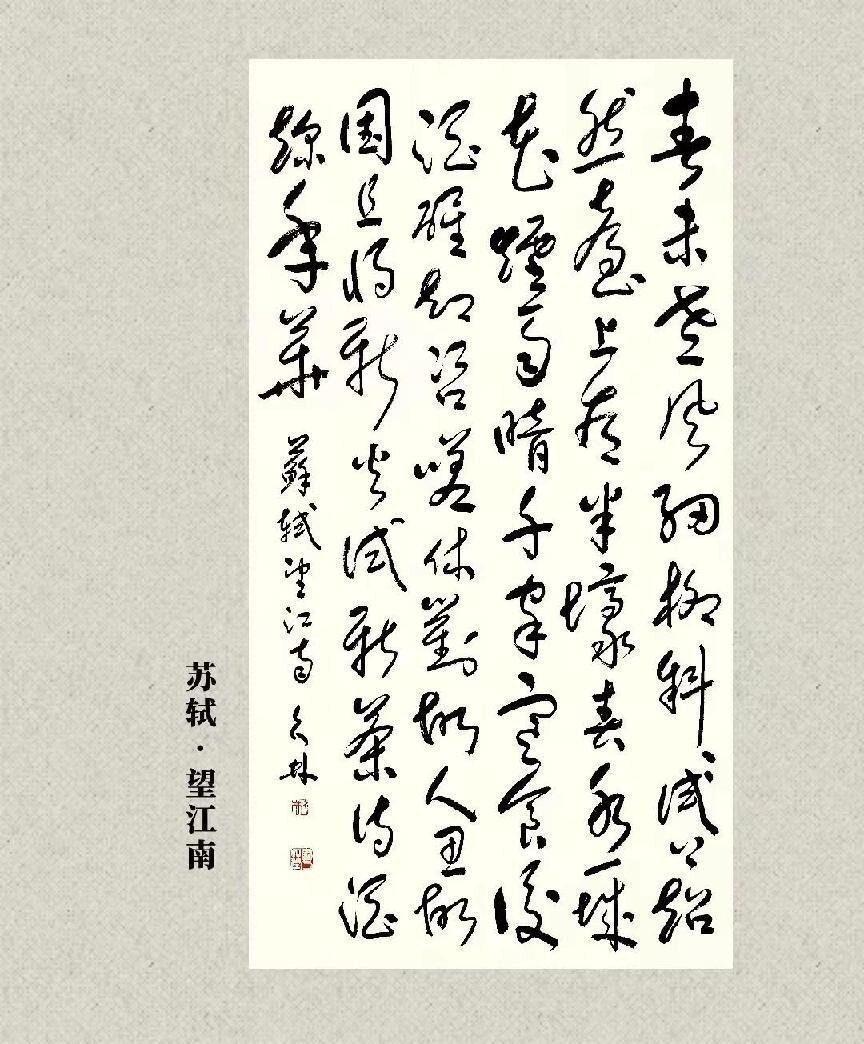 春未老風細柳斜〻試上超
然臺上看半壕春水一城
花煙雨暗千家寒食後
酒醒却咨嗟休對故人思故
國且將新火試新茶詩酒
趁年華 蘇軾望江南
苏轼·望江南